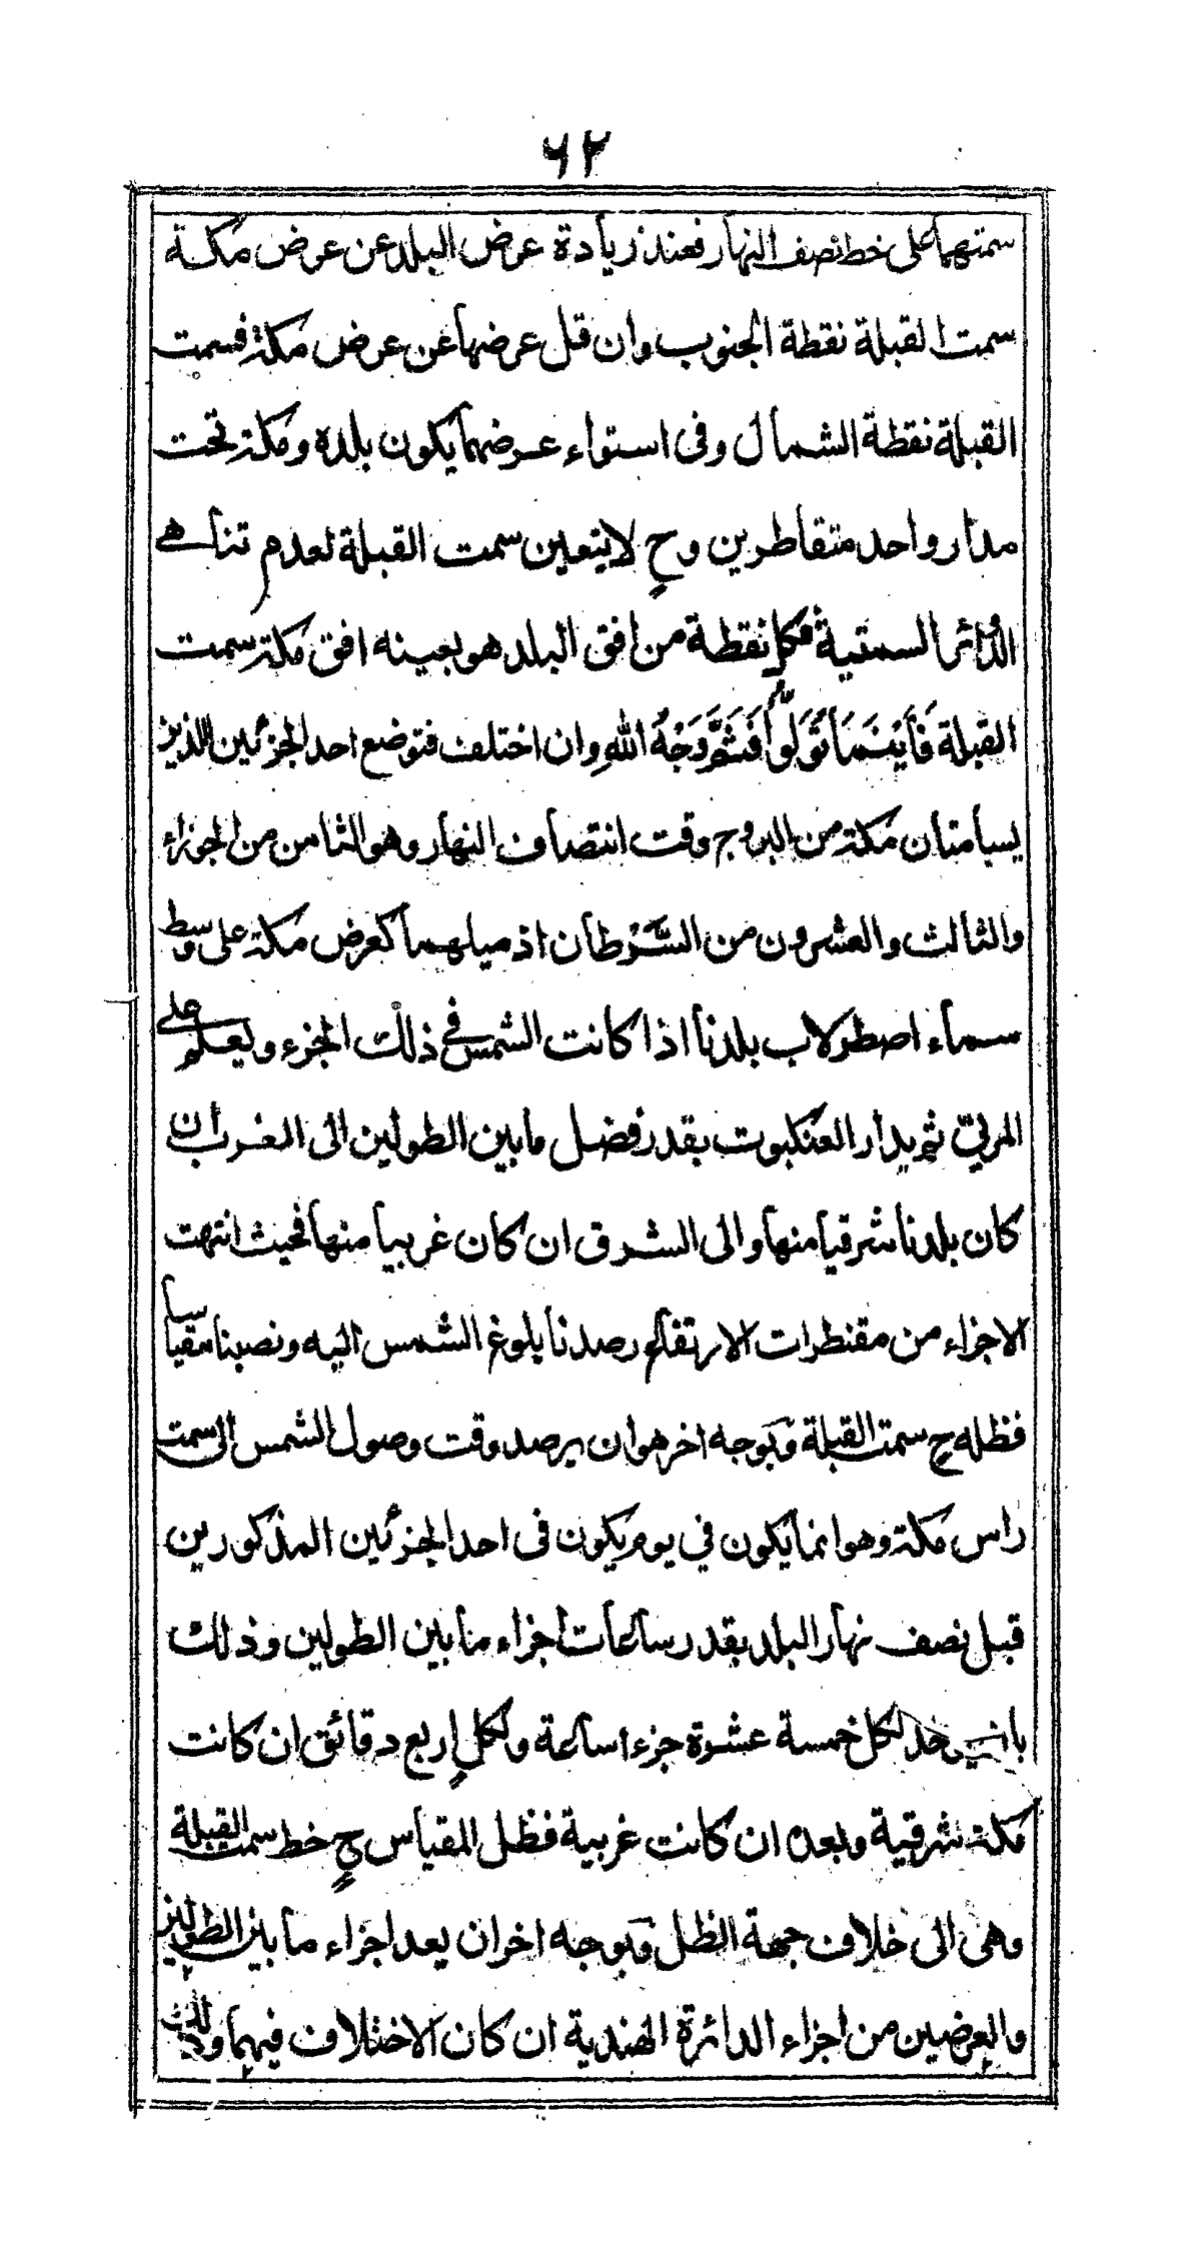 ٦٢
سمتهما على خط نصف النهار فعند زيادة عرض البلد عن عرض مكة
سمت القبلة نقطة الجنوب وان قل عرضها عن عرض مكة فسمت
القبلة نقطة الشمال وفى استواء عرضهما يكون بلده ومكة تحت
مدار واحد متقاطرين وح لا يتعين سمت القبلة لعدم تناهى
الدائر السمتية فكل نقطة من افق البلد هو بعينه افق مكة سمت
القبلة فَأَيْنَمَا تُوَلُّوا فَثَمَّ وَجْهُ اللهِ وان اختلف فتوضع احد الجزئين اللذين
يسامتان مكة من البروج وقت انتصاف النهار وهو الثامن من الجوزاء
والثالث والعشرون من السَّرْطان اذ ميلهما كعرض مكة على وسط
سماء اصطرلاب بلدنا اذا كانت الشمس فى ذلك الجزء ويعلم على
المرئى ثم يدار العنكبوت بقدر فضل ما بين الطولين الى المغرب ان
كان بلدنا شرقيا منها والى الشرق ان كان غربيا منها فحيث انتهت
الاجزاء من مقنطرات الارتفاع رصدنا بلوغ الشمس اليه ونصبنا مقياسا
فظله ح سمت القبلة وبوجه اخر هو ان يرصد وقت وصول الشمس الى سمت
راس مكة وهو انما يكون في يوم يكون فى احد الجزئين المذكورين
قبل نصف نهار البلد بقدر ساعات اجزاء ما بين الطولين وذلك
بان خذ لكل خمسة عشرة جزء ساعة ولكلٍ اربع دقائق ان كانت
مكة شرقية وبعده ان كانت غربية فظل المقياس ح خط سمت القبلة
وهى الى خلاف جهة الظل وبوجه اخر ان يعد اجزاء ما بين الطولين
والعرضين من اجزاء الدائرة الهندية ان كان الاختلاف فيهما وذلك